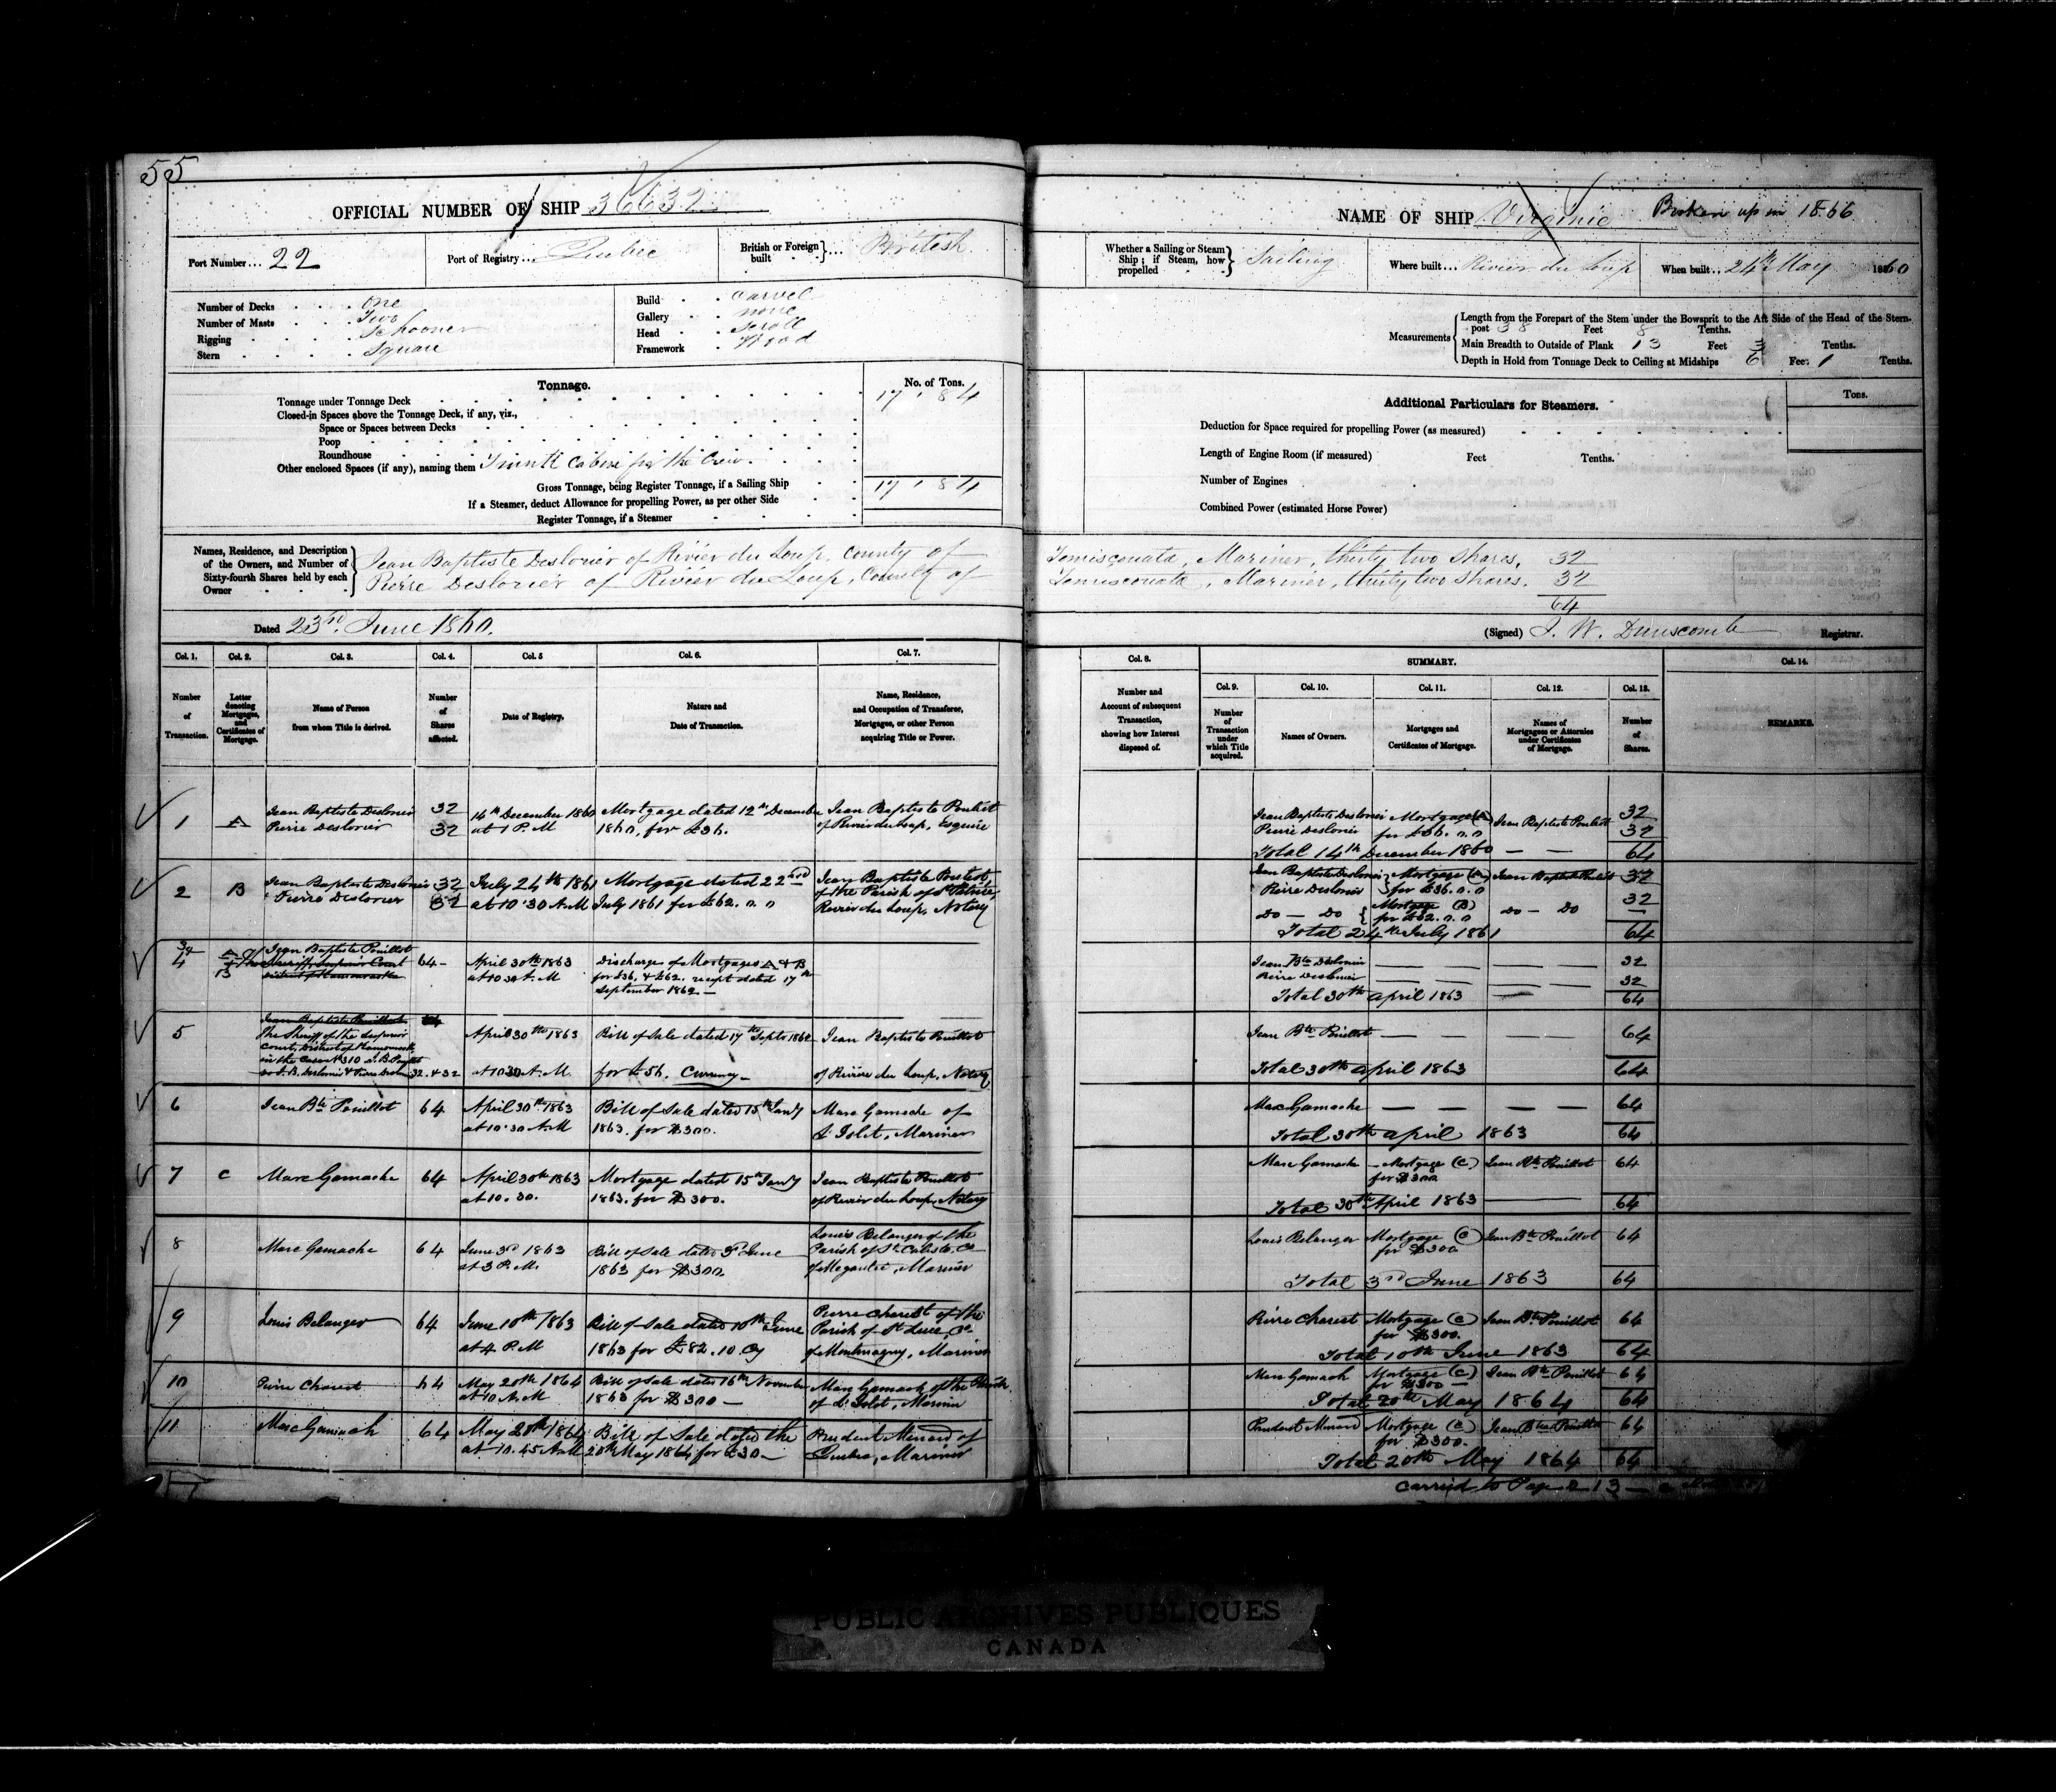 55
OFFICIAL NUMBER OF SHIP 36632
Port Number... 22
Port of Registry... Quebec
British or Foreign built } ... British
Number of Decks One
Number of Masts Two
Rigging Schooner
Stern Square
Build Carvel
Gallery none
Head Scroll
Framework Wood
Tonnage.
No. of Tons.
Tonnage under Tonnage Deck 17 . 84
Closed-in Spaces above the Tonnage Deck, if any, viz.,
Space or Spaces between Decks
Poop
Roundhouse
Other enclosed Spaces (if any), naming them Cabin for the Crew.
Gross Tonnage, being Register Tonnage, if a Sailing Ship 17 . 84
If a Steamer, deduct Allowance for propelling Power, as per other Side
Register Tonnage, if a Steamer
Names, Residence, and Description of the Owners, and Number of Sixty-fourth Shares held by each Owner
Jean Baptiste Deslorier of Rivier du Loup, County of Temisconata, Mariner, thirty two shares, 32
Pierre Deslorier of Rivier du Loup, County of Temisconata, Mariner, thirty two shares. 32
64
Dated 23rd June 1860.
(Signed) J. W. Dunscomb Registrar.
NAME OF SHIP Virginie Broken up in 1866
Whether a Sailing or Steam Ship; if Steam, how propelled } Sailing
Where built... Rivier du Loup
When built... 24th May 1860
Measurements
Length from the Forepart of the Stem under the Bowsprit to the Aft Side of the Head of the Stern-
post 38 Feet 8 Tenths.
Main Breadth to Outside of Plank 13 Feet 3 Tenths.
Depth in Hold from Tonnage Deck to Ceiling at Midships 6 Feet 1 Tenths.
Additional Particulars for Steamers.
Tons.
Deduction for Space required for propelling Power (as measured)
Length of Engine Room (if measured) Feet Tenths.
Number of Engines
Combined Power (estimated Horse Power)
Col. 1. Col. 2. Col. 3. Col. 4. Col. 5 Col. 6. Col. 7.
Number of Transaction.
Letter denoting Mortgages, and Certificates of Mortgage.
Name of Person from whom Title is derived.
Number of Shares affected.
Date of Registry.
Nature and Date of Transaction.
Name, Residence, and Occupation of Transferee, Mortgagee, or other Person acquiring Title or Power.
Col. 8. SUMMARY. Col. 14.
Col. 9. Col. 10. Col. 11. Col. 12. Col. 13.
Number and Account of subsequent Transaction, showing how Interest disposed of.
Number of Transaction under which Title acquired.
Names of Owners.
Mortgages and Certificates of Mortgage.
Names of Mortgagees or Attornies under Certificates of Mortgage.
Number of Shares.
REMARKS.
1 A Jean Baptiste Deslorier 32 14th December 1860 Mortgage dated 12th December Jean Baptiste Pouliot
Pierre Deslorier 32 at 1 P.M 1860, for £36. of Rivier du Loup, Esquire
Jean Baptiste Deslorier Mortgage (A) Jean Baptiste Pouliot 32
Pierre Deslorier for £36. 0. 0 32
Total 14th December 1860 64
2 B Jean Baptiste Deslorier 32 July 24th 1861 Mortgage dated 22nd Jean Baptiste Pouliot,
Pierre Deslorier 32 at 10.30 A.M July 1861 for £62. 0. 0 of the Parish of St Patrice,
Rivier du Loup, Notary
Jean Baptiste Deslorier Mortgage (A) Jean Baptiste Pouliot 32
Pierre Deslorier for £36. 0. 0
Do — Do Mortgage (B) for £62. 0. 0 Do — Do 32
Total 24th July 1861 64
4 A + B Jean Baptiste Pouillot 64 April 30th 1863 Discharge of Mortgages A & B
Sheriff Superior Court at 10 30 A.M for £36. & £62. receipt dated 17th
District of Kamouraska September 1862 —
Jean Bte Deslorier 32
Pierre Deslorier 32
Total 30th April 1863 64
5 Jean Baptiste Pouillot 64
The Sheriff of the Superior April 30th 1863 Bill of Sale dated 17th Septr 1862 Jean Baptiste Pouillot
Court, District of Kamouraska
in the Case No 310 J. B. Pouillot
vs J. B. Deslorier & Pierre Deslorier 32 & 32 at 10 30 A.M. for £56. Currency — of Rivière du Loup, Notary
Jean Bte Pouillot 64
Total 30th April 1863 64
6 Jean Bte Pouillot 64 April 30th 1863 Bill of Sale dated 15th Jany Marc Gamache of
at 10.30 A.M 1863. for $300. L'Islet, Mariner
Marc Gamache 64
Total 30th April 1863 64
7 C Marc Gamache 64 April 30th 1863 Mortgage dated 15th Jany Jean Baptiste Pouillot
at 10.30. 1863. for $300. of Rivier du Loup, Notary
Marc Gamache Mortgage (C) Jean Bte Pouillot 64
for $300
Total 30th April 1863 64
8 Marc Gamache 64 June 3rd 1863 Bill of Sale dated 3rd June Louis Belanger of the
at 3 P.M. 1863 for $300 Parish of St Calixte, Co
of Megantic, Mariner
Louis Belanger Mortgage (C) Jean Bte Pouillot 64
for $300
Total 3rd June 1863 64
9 Louis Belanger 64 June 10th 1863 Bill of Sale dated 10th June Pierre Charest of the
at 4 P.M 1863 for £82. 10. Cy Parish of St Luce, Co
of Montmagny, Mariner
Pierre Charest Mortgage (C) Jean Bte Pouillot 64
for $300.
Total 10th June 1863 64
10 Pierre Charest 64 May 20th 1864 Bill of Sale dated 16th November Marc Gamach of the Parish
at 10 A.M 1863 for $300 — of L'Islet, Mariner
Marc Gamach Mortgage (C) Jean Bte Pouillot 64
for $300
Total 20th May 1864 64
11 Marc Gamach 64 May 20th 1864 Bill of Sale dated the Prudent Menard of
at 10.45 A.M 20th May 1864 for £30 — Quebec, Mariner
Prudent Menard Mortgage (C) Jean Bte Pouillot 64
for $300.
Total 20th May 1864 64
Carried to Page 213
PUBLIC ARCHIVES PUBLIQUES
CANADA